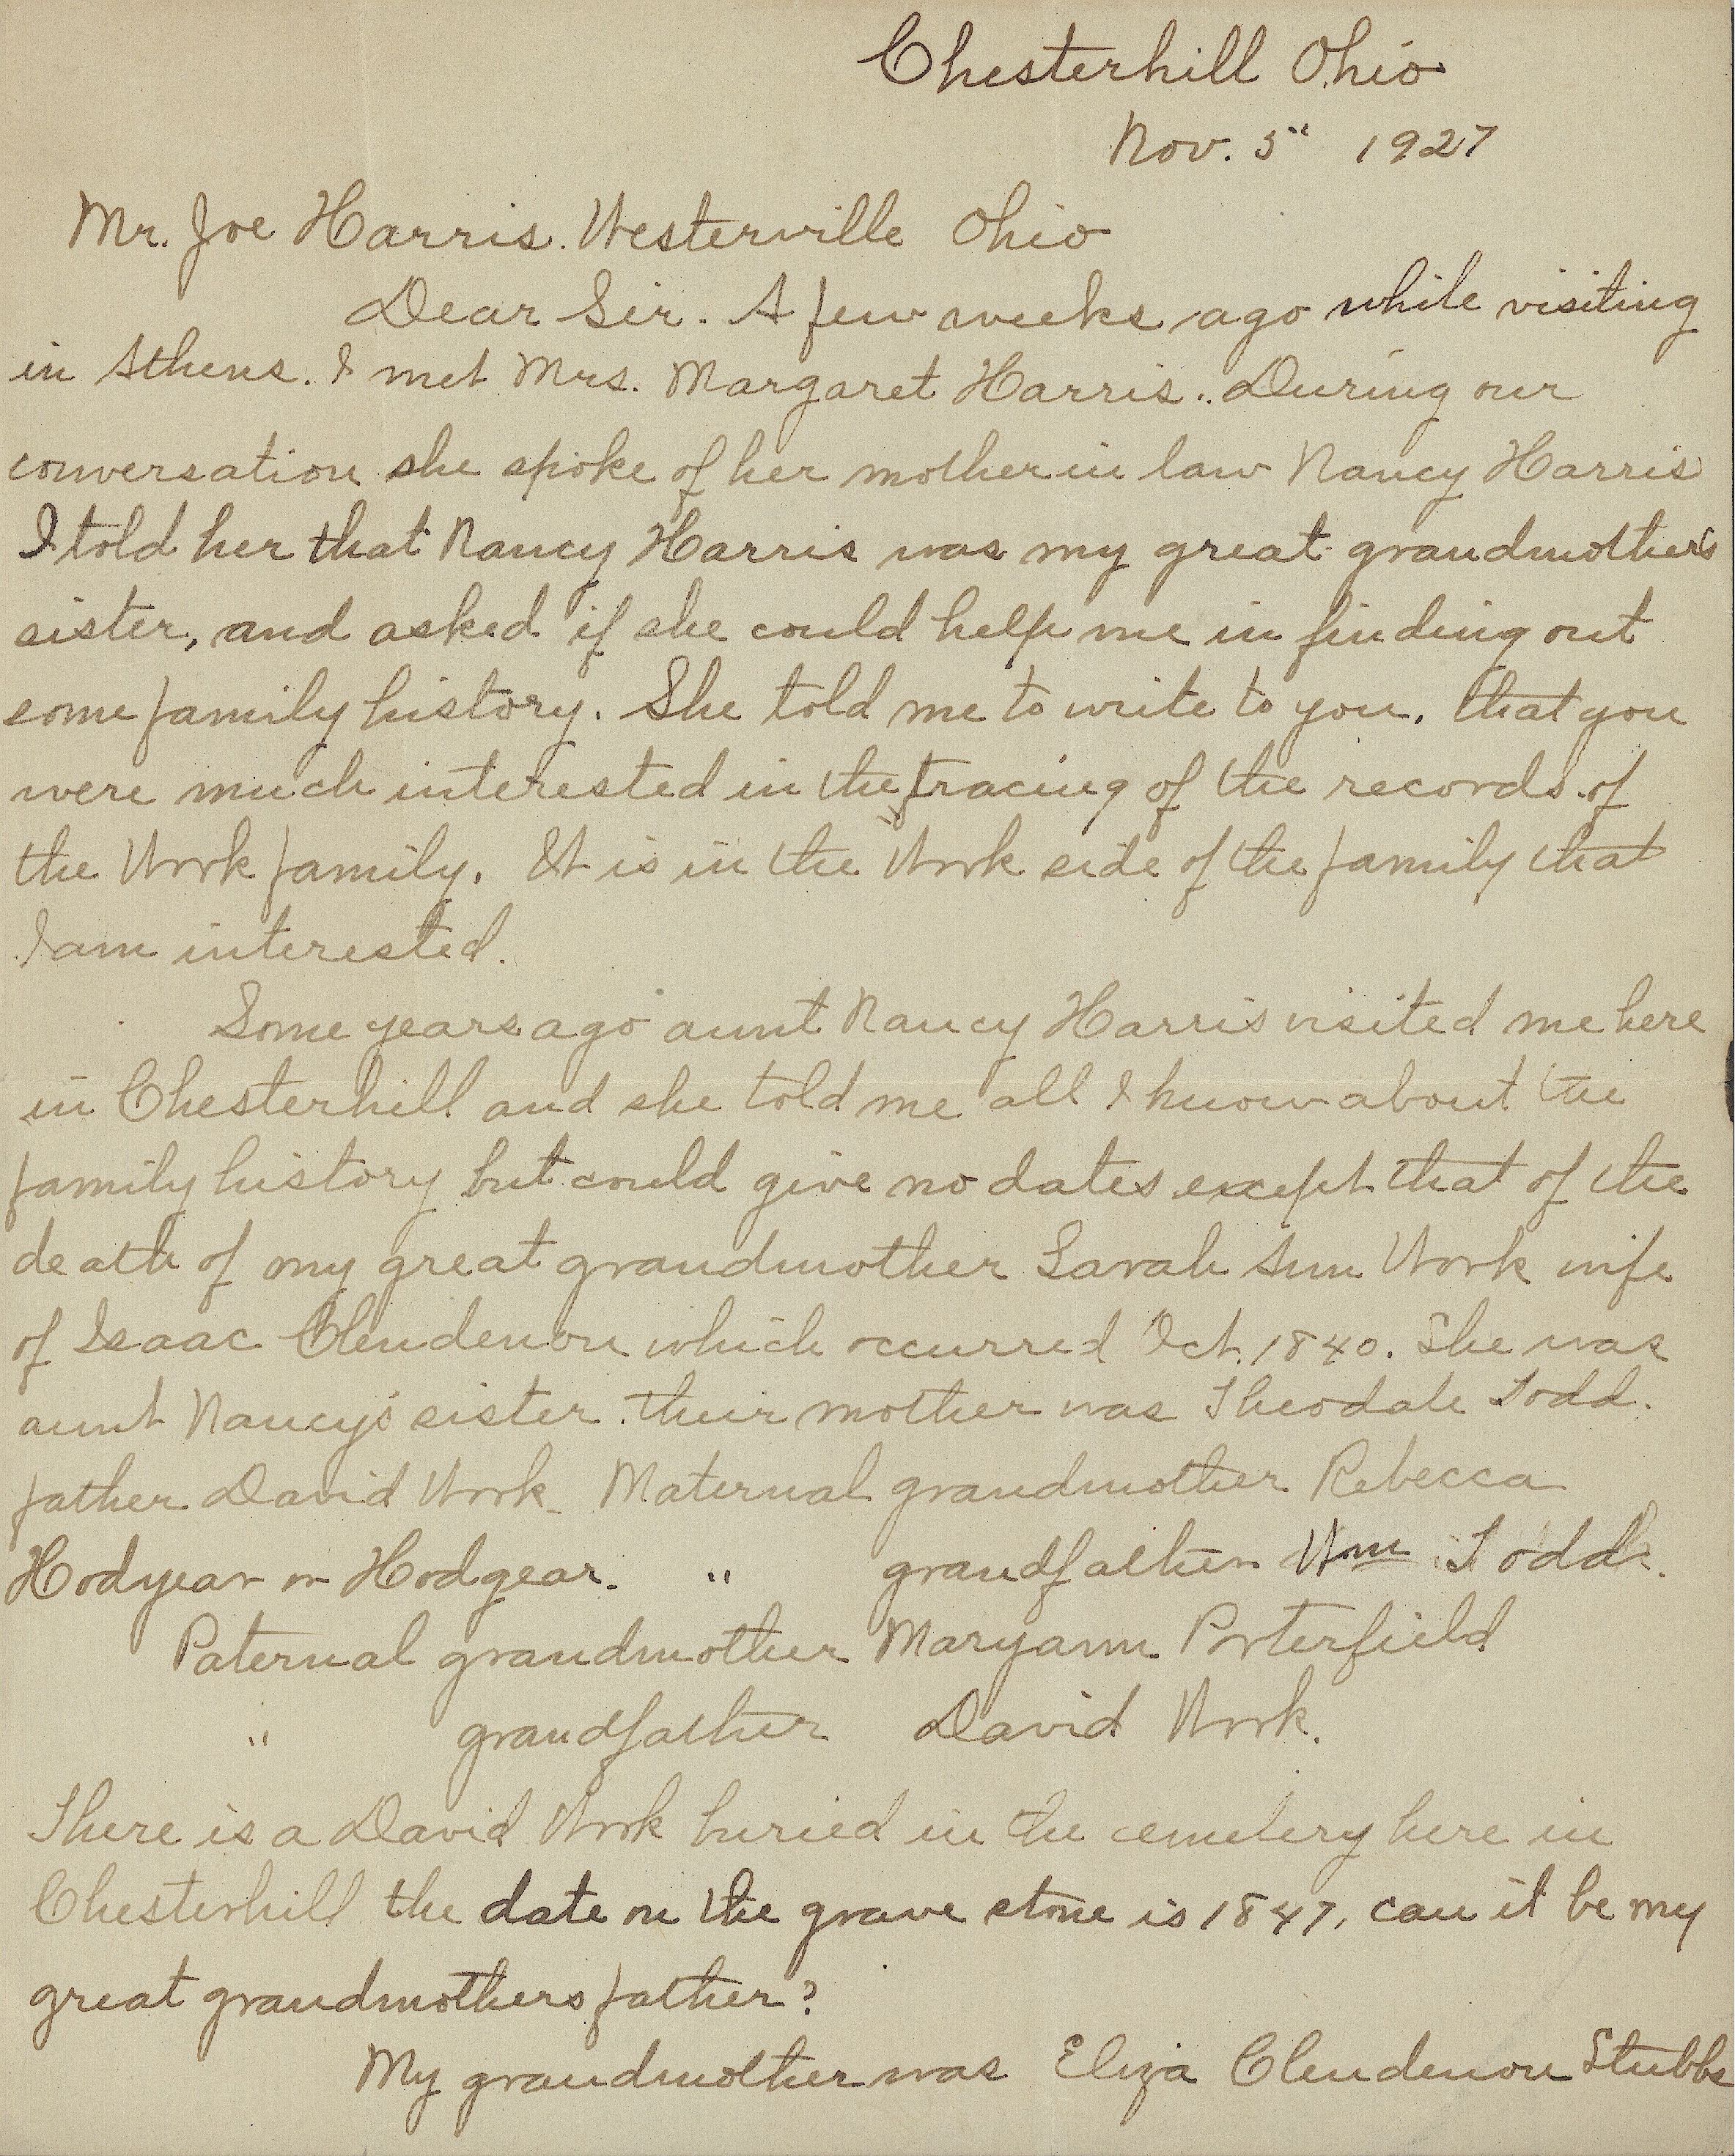 Chesterhill Ohio
Nov. 5" 1927
Mr. Joe Harris. Westerville Ohio
Dear Sir. A few weeks ago while visiting
in Athens. I met Mrs. Margaret Harris.. During our
conversation she spoke of her mother in law Nancy Harris
I told her that Nancy Harris was my great grandmother's
sister, and asked if she could help me in finding out
some family history. She told me to write to you. that you
were much interested in the tracing of the records of
the Work family. It is in the Work side of the family that
I am interested.
Some years ago aunt Nancy Harris visited me here
in Chesterhill and she told me all I know about the
family history but could give no dates except that of the
death of my great grandmother Sarah Ann Work wife
of Isaac Clendenon which occurred Oct. 1840. She was
aunt Nancy's sister. their mother was Theodate Todd.
father David Work Maternal grandmother Rebecca
Hodyear or Hodgear. " grandfather Wm Todd.
Paternal grandmother Maryann Porterfield
" grandfather David Work.
There is a David Work buried in the cemetery here in
Chesterhill the date on the grave stone is 1847, can it be my
great grandmothers father?
My grandmother was Eliza Clendenon Stubbs